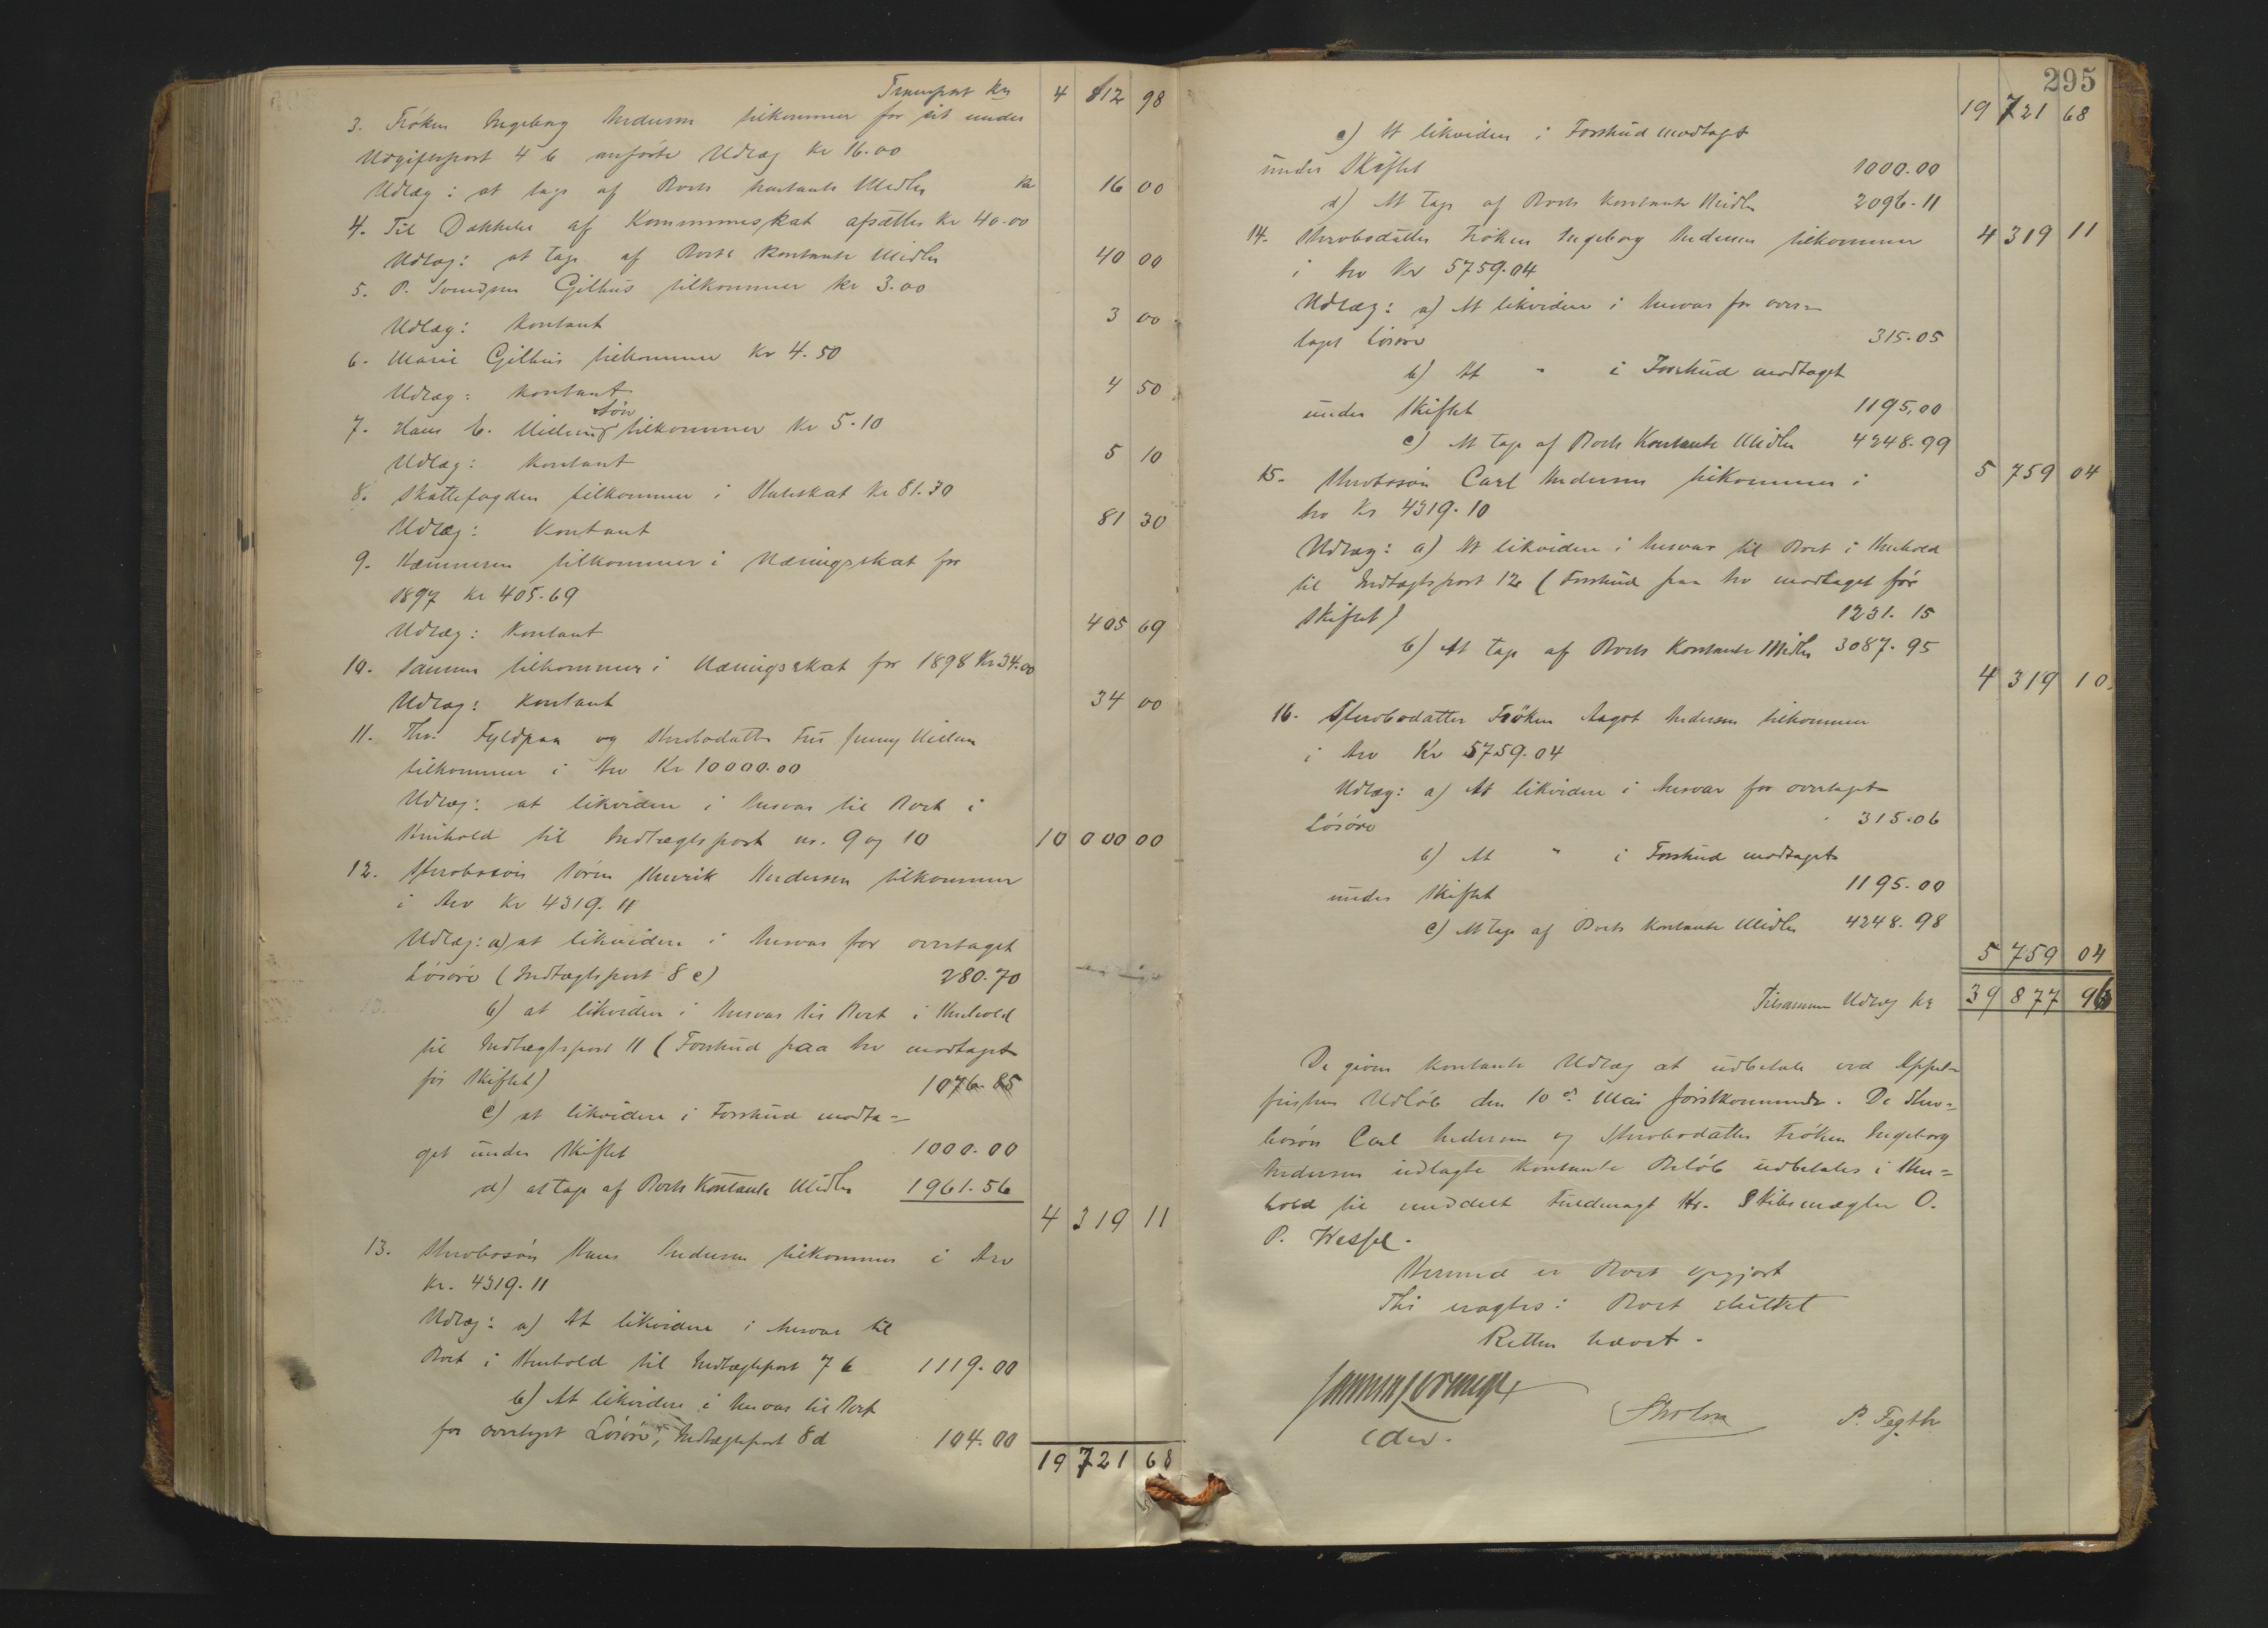 Transport Kr 4 812 98
3. Frøken Ingeborg Andersen tilkommer for sit under
Udgiftspost 4 b anførte Udlæg Kr 16.00
Udlæg: at tage af Boets kontante Midler Kr 16 00
4. Til Dækkelse af Kommuneskat afsættes Kr 40.00
Udlæg: at tage af Boets kontante Midler 40 00
5. P. Svendsen Gilhus tilkommer Kr 3.00
Udlæg: Kontant 3 00
6. Marie Gilhus tilkommer Kr 4.50
Udlæg: kontant 4 50
søn
7. Hans E. Nielsens tilkommer Kr 5.10
Udlæg: kontant 5 10
8. Skattefogden tilkommer i Statsskat Kr 81.30
Udlæg: Kontant 81 30
9. Kæmneren tilkommer i Næringsskat for
1897 Kr 405.69
Udlæg: Kontant 405 69
10. Samme tilkommer i Næringsskat for 1898 Kr 34.00
Udlæg: Kontant 34 00
11. Thv. Fyldpaa og Stervbodatter Fru Jenny Nielsen
tilkommer i Arv Kr 10000.00
Udlæg: at likvidere i Ansvar til Boet i
Henhold til Indtægtspost nr. 9 og 10 10 000 00
12. Stervbosøn Søren Henrik Andersen tilkommer
i Arv Kr 4319.11
Udlæg: a) at likvidere i Ansvar for overtaget
Løsøre (Indtægtspost 8 c) 280.70
b) at likvidere i Ansvar til Boet i Henhold
til Indtægtspost 11 (Forskud paa Arv modtaget
før Skiftet) 1076.85
c) at likvidere i Forskud modta=
get under Skiftet 1000.00
d) at tage af Boets Kontante Midler 1961.56
4 319 11
13. Stervbosøn Hans Andersen tilkommer i Arv
Kr. 4319.11
Udlæg: a) At likvidere i Ansvar til
Boet i Henhold til Indtægtspost 7 b 1119.00
b) At likvidere i Ansvar til Boet
for overtaget Løsøre, Indtægtspost 8 d 104.00
19 721 68
295
19 721 68
c) At likvidere i Forskud modtaget
under Skiftet 1000.00
d) At tage af Boets kontante Midler 2096.11
4 319 11
14. Stervbodatter Frøken Ingeborg Andersen tilkommer
i Arv Kr 5759.04
Udlæg: a) At likvidere i Ansvar for over=
taget Løsøre 315.05
b) At " i Forskud modtaget
under Skiftet 1195.00
c) At tage af Boets Kontante Midler 4248.99
5 759 04
15. Stervbosøn Carl Andersen tilkommer i
Arv Kr 4319.10
Udlæg: a) At likvidere i Ansvar til Boet i Henhold
til Indtægtspost 12 (Forskud paa Arv modtaget før
Skiftet) 1231.15
b) At tage af Boets Kontante Midler 3087.95
4 319 10
16. Stervbodatter Frøken Aagot Andersen tilkommer
i Arv Kr 5759.04
Udlæg: a) At likvidere i Ansvar for overtaget
Løsøre 315.06
b) At " i Forskud modtaget
under Skiftet 1195.00
c) At tage af Boets kontante Midler 4248.98
5 759 04
Tilsammen Udlæg Kr 39 877 96
De givne kontante Udlæg at udbetale ved Appel=
fristens Udløb den 10de Mai førstkommende. De Sterv=
bosøn Carl Andersen og Stervbodatter Frøken Ingeborg
Andersen udlagte kontante Beløb udbetales i Hen=
hold til meddelt Fuldmagt Hr. Skibsmægler O.
P. Wessel.
Hermed er Boet opgjort
Thi eragtes: Boet sluttet
Retten hævet.
P. Fegth